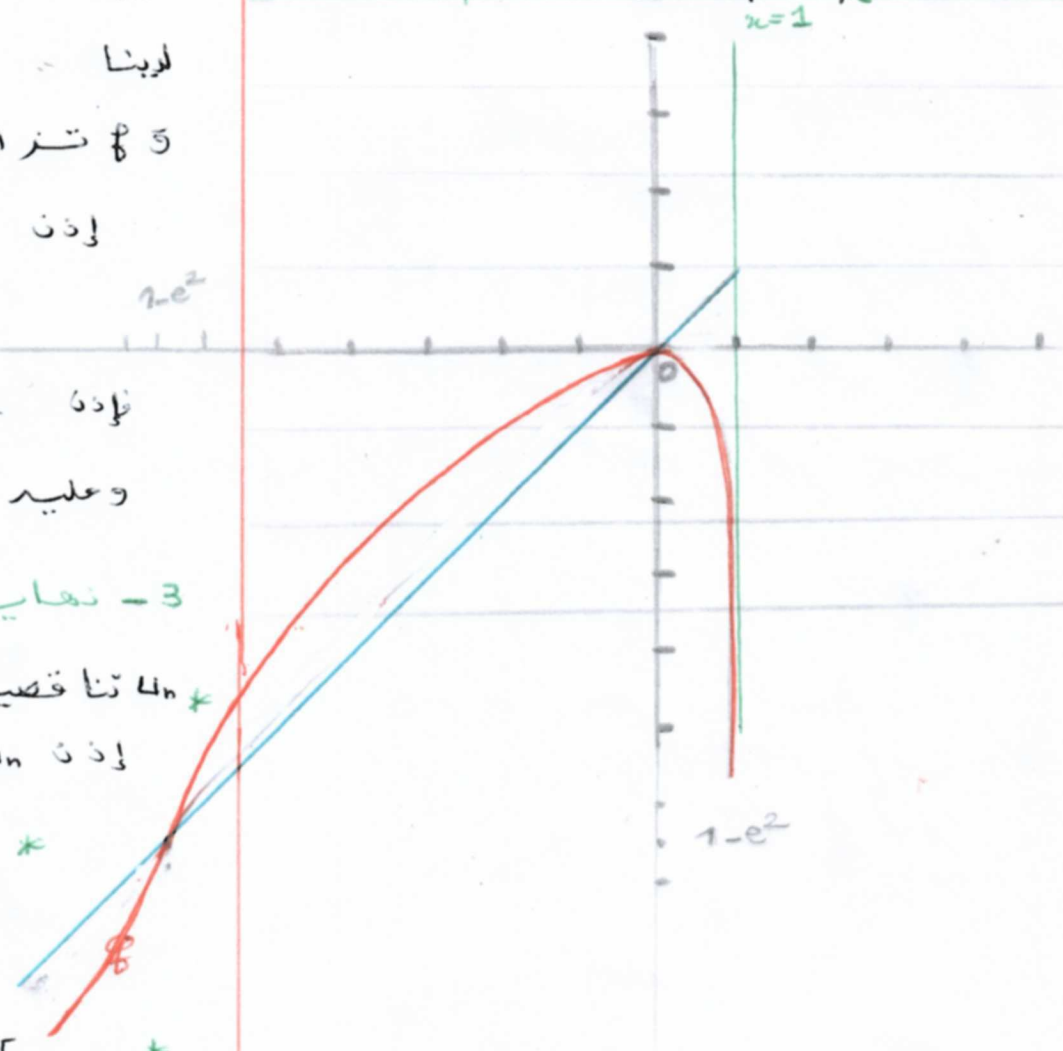 x=1
لدينا
و f تز
إذن
1-e²
0
فإذن
وعليه
3 - نهاي
* Un تنا قصي
إذن Un
*
1-e²
f
*